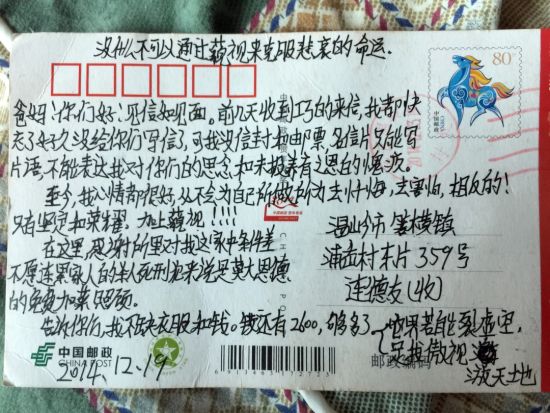 没什么不可以通过藐视来克服悲哀的命运.
80分
中国邮政
CHINA
爸妈:你们好!见信如见面。前几天收到巧的来信,我都快
忘了好久没给你们写信,可我没信封和邮票,名信片只能写
片语,不能表达我对你们的思念和未报养育之恩的愧疚。
至今,我心情都很好,从不会为自己所做行为去忏悔,去害怕,相反的!
只有坚定和荣耀。加上藐视!!!!
在这里,感谢所里对我这家中条件差
不愿连累家人的 死刑犯来说是莫大恩德
的免费加菜照顾。
告诉你们,我不缺衣服和钱。钱还有2600,够多了
温岭市箬横镇
浦岙村 片359号
连德友(收)
世界若能裂为二,
是我傲视
泼天地
中国邮政
CHINA POST
2014.12.19
邮政编码